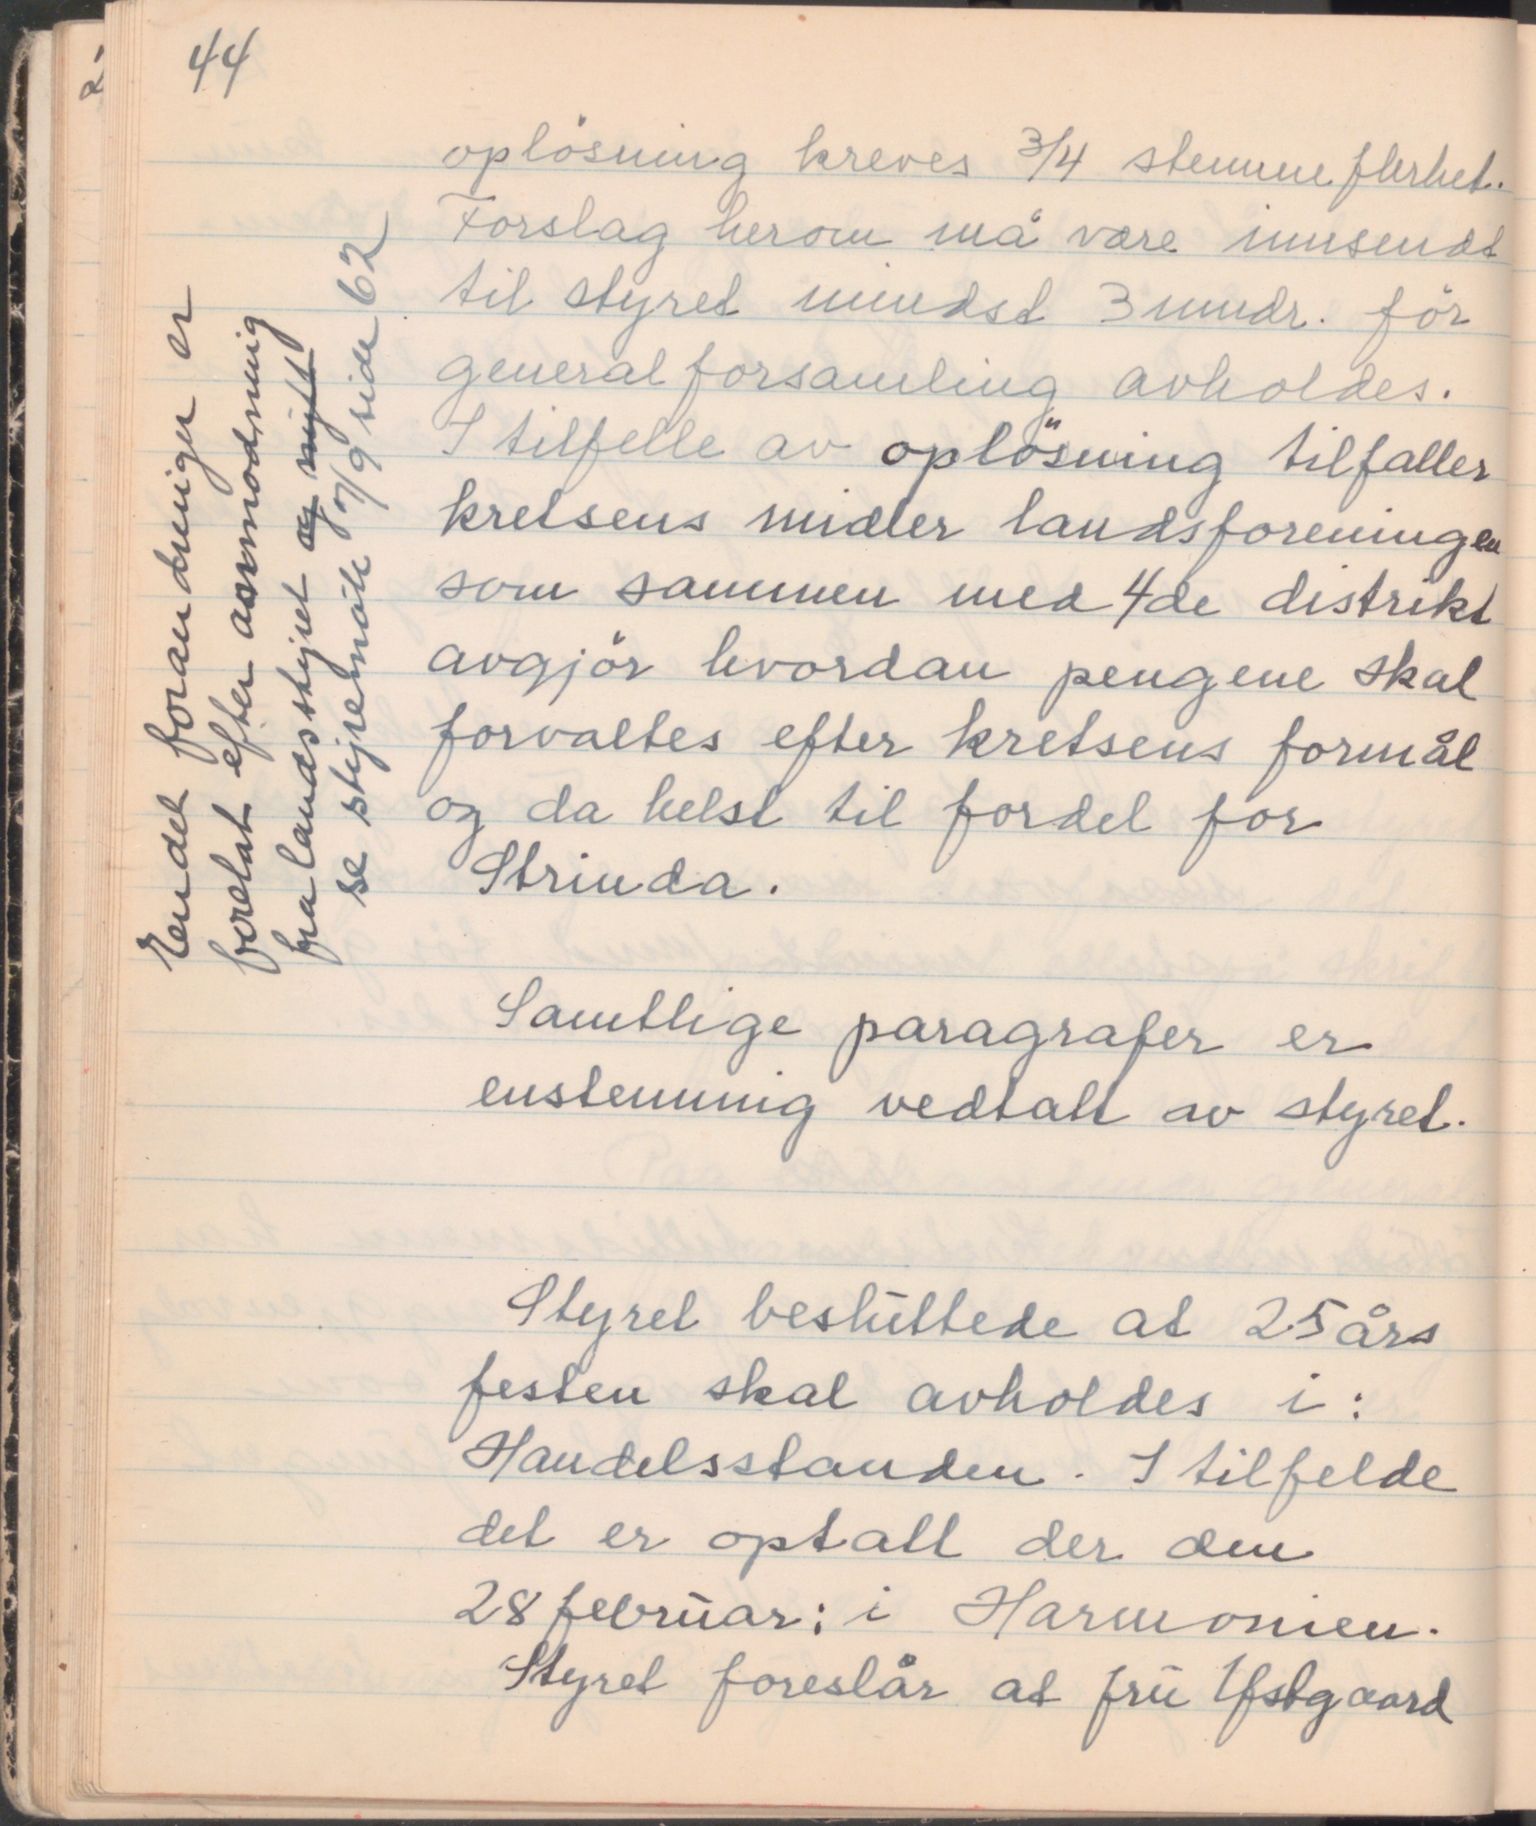 44
oplösning kreves 3/4 stemmeflerhet.
Forslag herom må være innsendt
til styret mindst 3 mndr. för
generalforsamling avholdes.
I tilfelle av oplösning tilfaller
kretsens midler landsforeningen
som sammen med 4de distrikt
avgjör hvordan pengene skal
forvaltes efter kretsens formål
og da helst til fordel for
Strinda.
Samtlige paragrafer er
enstemmig vedtatt av styret.
Styret besluttede at 25 års
festen skal avholdes i:
Handelsstanden. I tilfelde
det er optatt der den
28 februar: i Harmonien.
Styret foreslår at fru Ufstgaard
Eendel forandringer er
foretat efter anmodning
fra landsstyret og
se styremöte 7/9 side 62